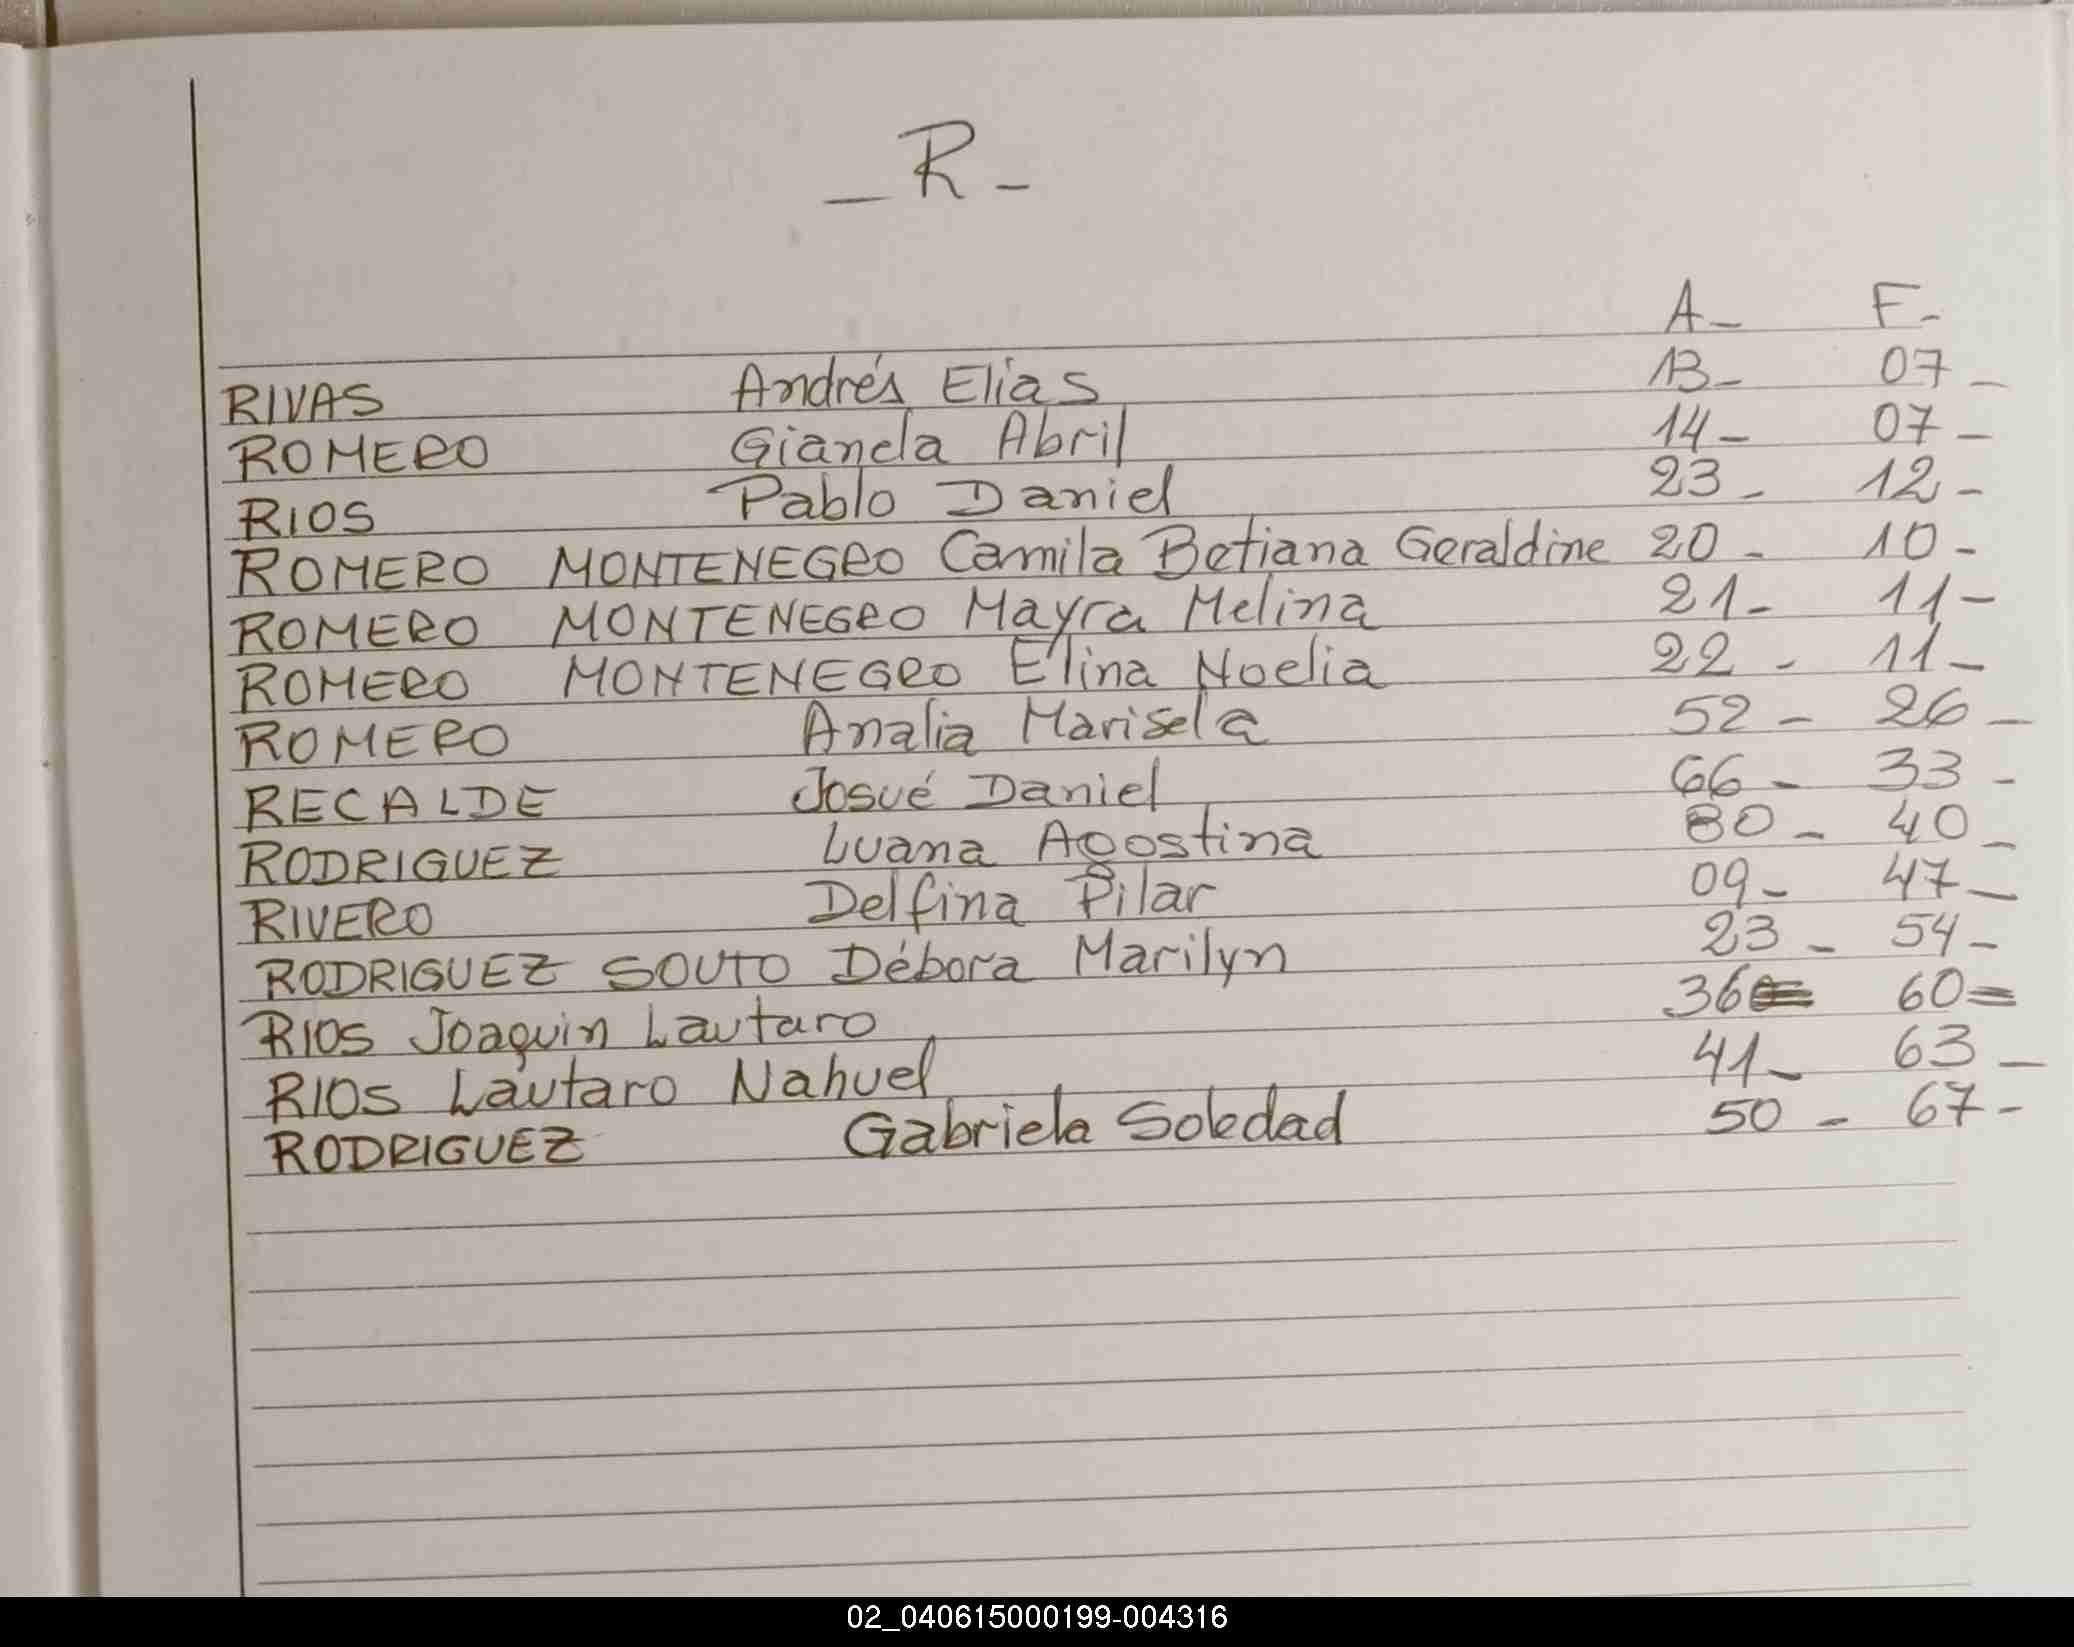 _ R _
A_ F_
RIVAS Andrés Elías 13_ 07_
ROMERO Gianela Abril 14_ 07_
RIOS Pablo Daniel 23_ 12_
ROMERO MONTENEGRO Camila Betiana Geraldine 20_ 10_
ROMERO MONTENEGRO Mayra Melina 21_ 11_
ROMERO MONTENEGRO Elina Noelia 22_ 11_
ROMERO Analia Marisela 52_ 26_
RECALDE Josué Daniel 66_ 33_
RODRIGUEZ Luana Agostina 80_ 40_
RIVERO Delfina Pilar 09_ 47_
RODRIGUEZ SOUTO Débora Marilyn 23_ 54_
RIOS Joaquin Lautaro 36= 60=
RIOS Lautaro Nahuel 41_ 63_
RODRIGUEZ Gabriela Soledad 50_ 67_
02_040615000199-004316